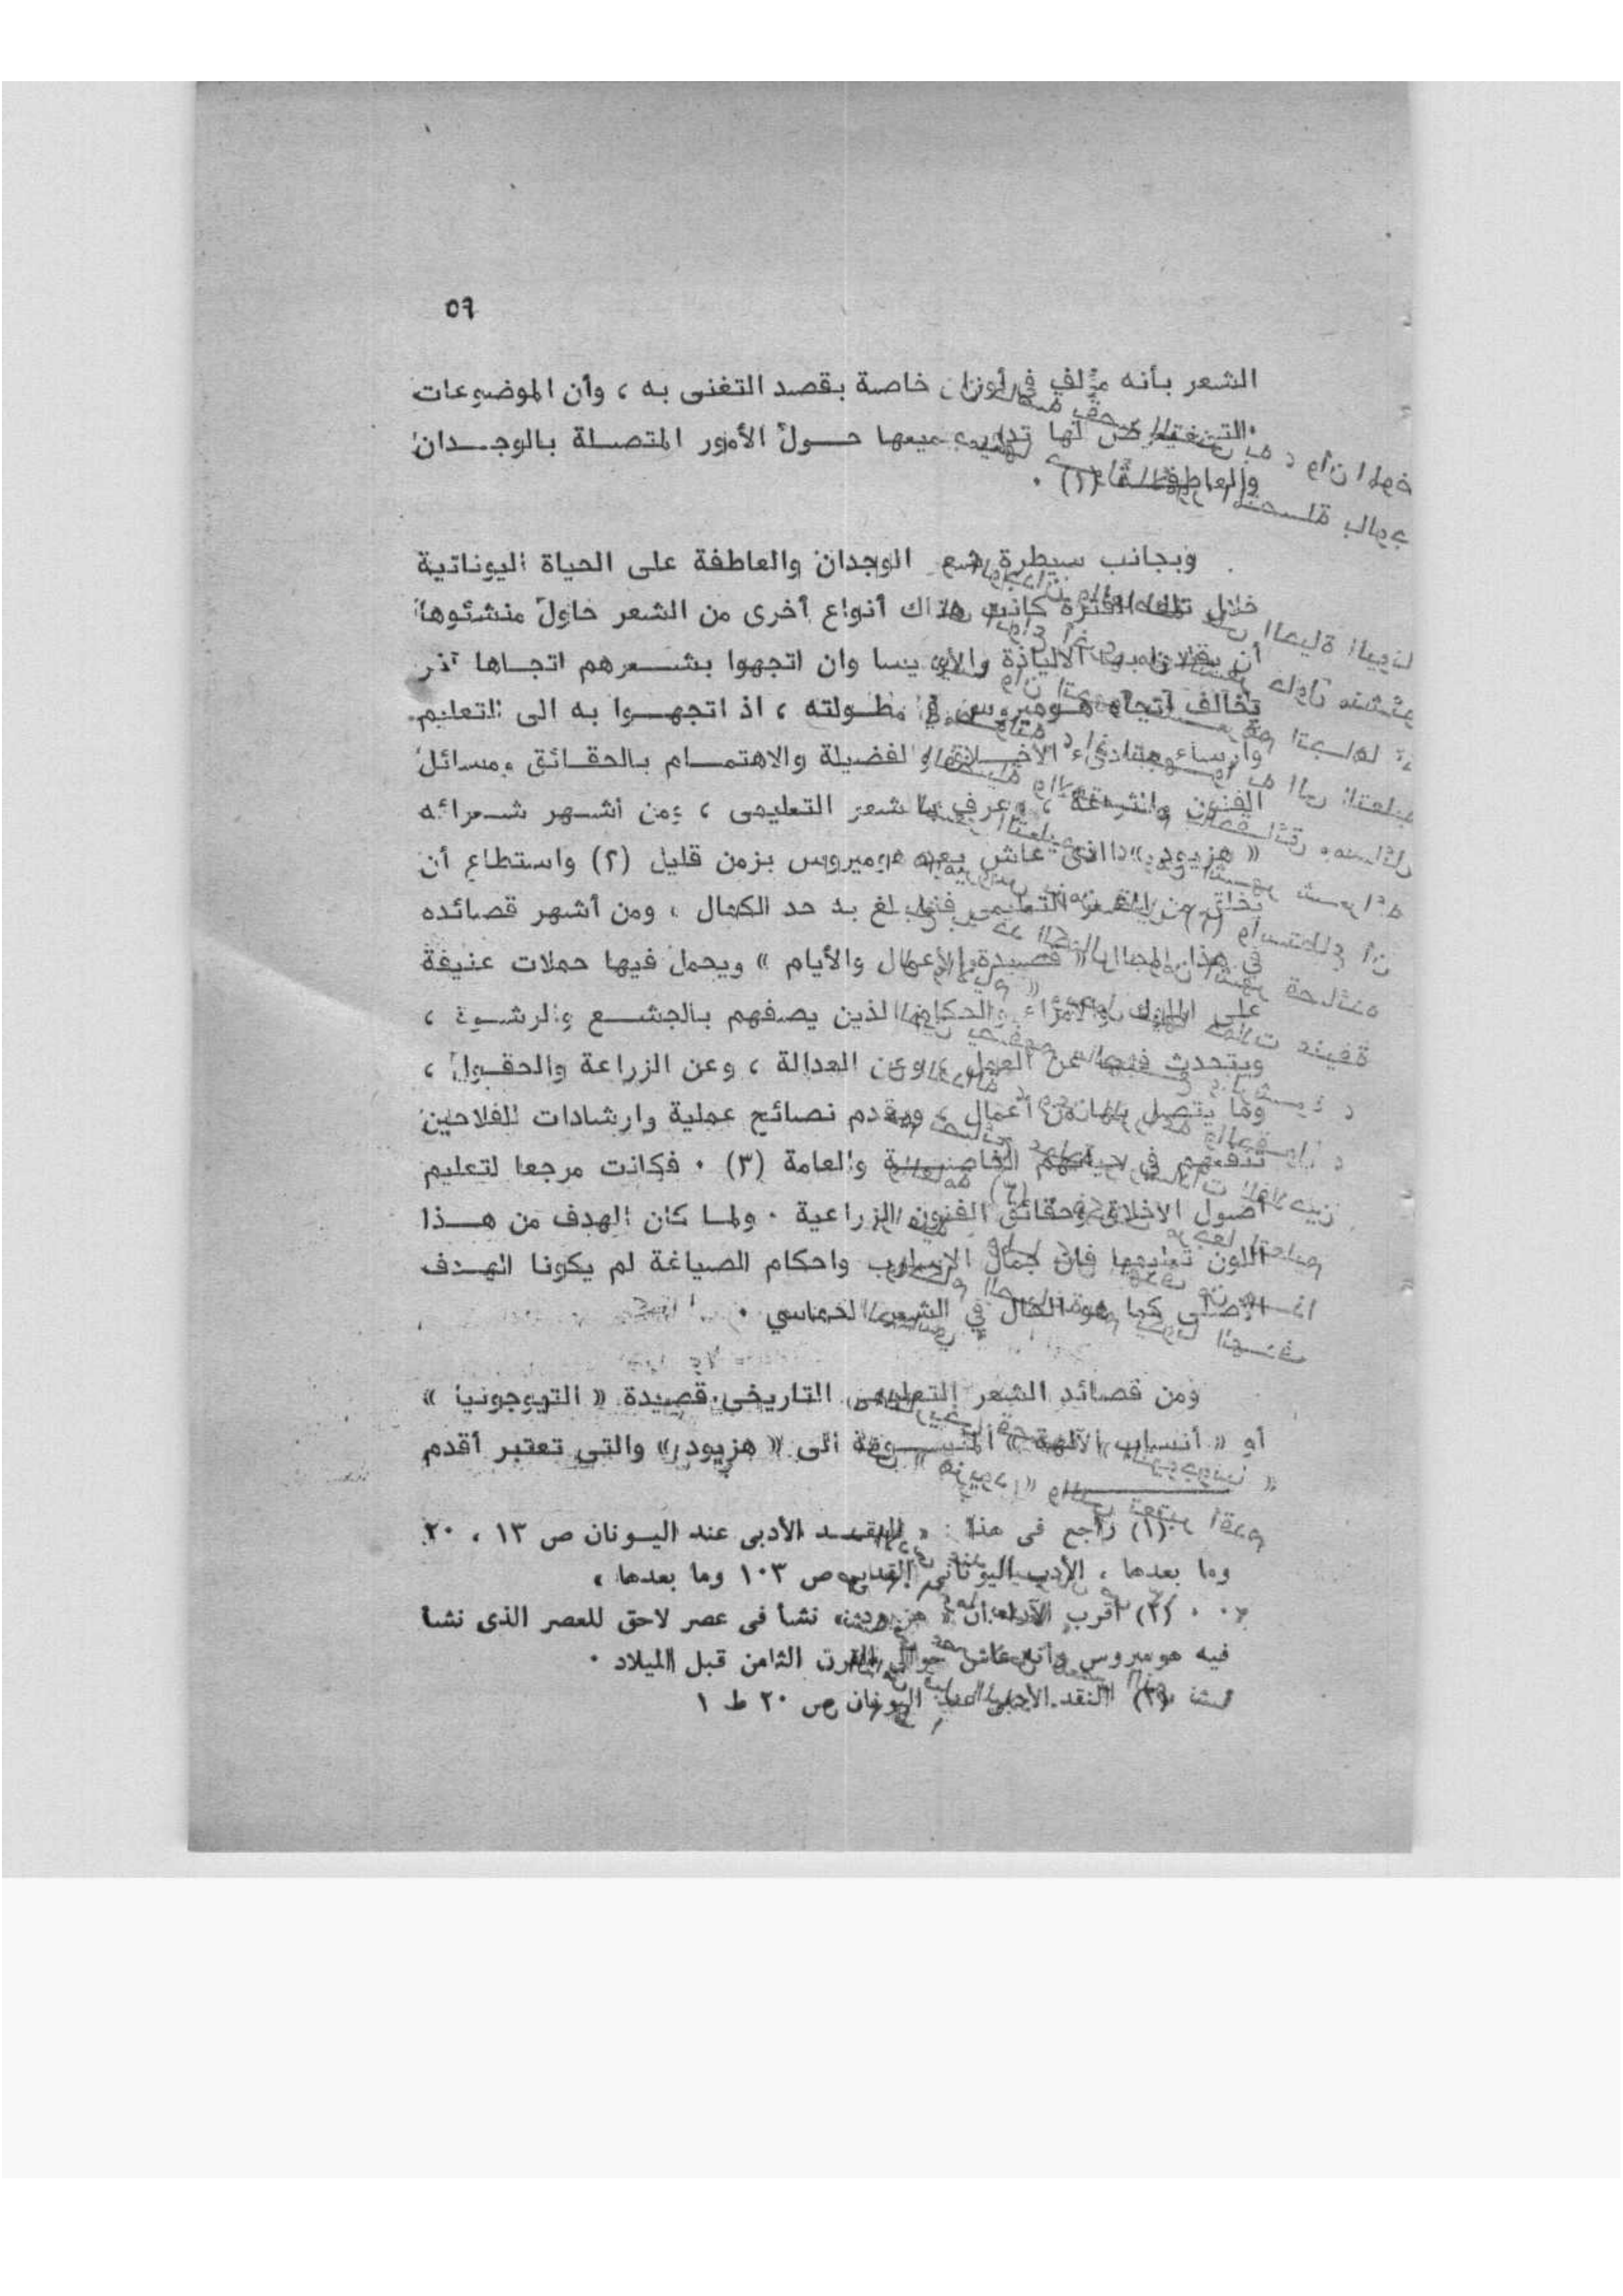 ٥٦
الشعر بأنه مؤلف في أوزان خاصة بقصد التغنى به ، وأن الموضوعات
التي لها تدور جميعها حـــول الأمور المتصــلة بالوجــدان
والعاطفــة (١) .
وبجانب سيطرة شعر الوجدان والعاطفة على الحياة اليوناتية
خلال تلك الفترة كانت هناك أنواع أخرى من الشعر حاول منشئوها
أن الالياذة وان اتجهوا بشــعرهم اتجــاها آخر
تخالف اتجاه هــوميروس في مطــولته ، اذ اتجهــوا به الى التعليم
وارساء مبادىء الأخــلاق والفضيلة والاهتمــام بالحقــائق ومسائل
الفنون ، وعرف بالشعر التعليمى ، ومن أشــهر شــعرائه
« هزيود » الذى عاش بعد هوميروس بزمن قليل (٢) واستطاع أن
يخلق من الشعر التعليمى فنا بلغ به حد الكمال ، ومن أشهر قصائده
في هذا المجال « قصيدة الأعمال والأيام » ويحمل فيها حملات عنيفة
على الملوك والأمراء والحكام الذين يصفهم بالجشــع والرشــوة ،
ويتحدث فيها عن العمل ، وعن العدالة ، وعن الزراعة والحقــول ،
وما يتصل بهما من أعمال ، ويقدم نصائح عملية وارشادات للفلاحين
تنفعهم في حياتهم الخاصــة والعامة (٣) . فكانت مرجعا لتعليم
أصول الاخلاق وحقائق الفنون الزراعية . ولمــا كان الهدف من هــذا
اللون تعليميا فان جمال الاسلوب واحكام الصياغة لم يكونا الهــدف
الأصلى كما هو الحال في الشعر الحماسي .
ومن قصائد الشعر التعليمى التاريخى قصيدة « التيوجونيا »
أو « أنساب الآلهة » المنســوبة الى « هزيود » والتى تعتبر أقدم
(١) راجع فى هذا : « النقــد الأدبى عند اليــونان ص ١٣ ، ٢٠
وما بعدها ، الأدب اليونانى القديم ص ١٠٣ وما بعدها ،
(٢) أقرب الآراء أن « هزيود » نشأ فى عصر لاحق للعصر الذى نشأ
فيه هوميروس وأنه عاش حوالى القرن الثامن قبل الميلاد .
(٣) النقد الأدبى عند اليونان ص ٢٠ ط ١